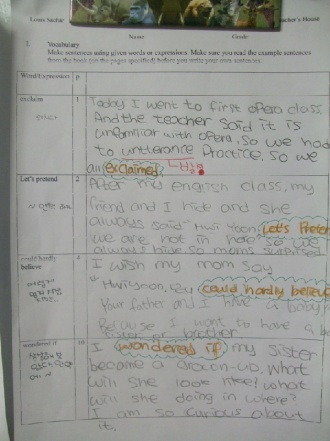 Louis Sachar
Name
Grade
1. Vocabulary
Make sentences using given words or expressions. Make sure you read the example sentences
from the book (on the pages specified) before you write your own sentences.
Word/Expression p
exclaim 1
Today I went to first opera class.
And the teacher said it is
unfamiliar with opera, so we had
to untterance practice. so we
all exclaimed
Let's pretend 2
After my english class, my
friend and I hide and she
always said "Hwi Yoon, Let's Pretend
we are not in here" so we
always hide so moms surprised
could hardly
believe 4
I wish my mom say
"Hwiyoon, you could hardly believe
Your father and I have a baby
Because I want to have a
sister or brother
wondered if 10
I wondered if my sister
became a grown-up, what
will she look like? what
will she doing in where?
I am so curious about
it.